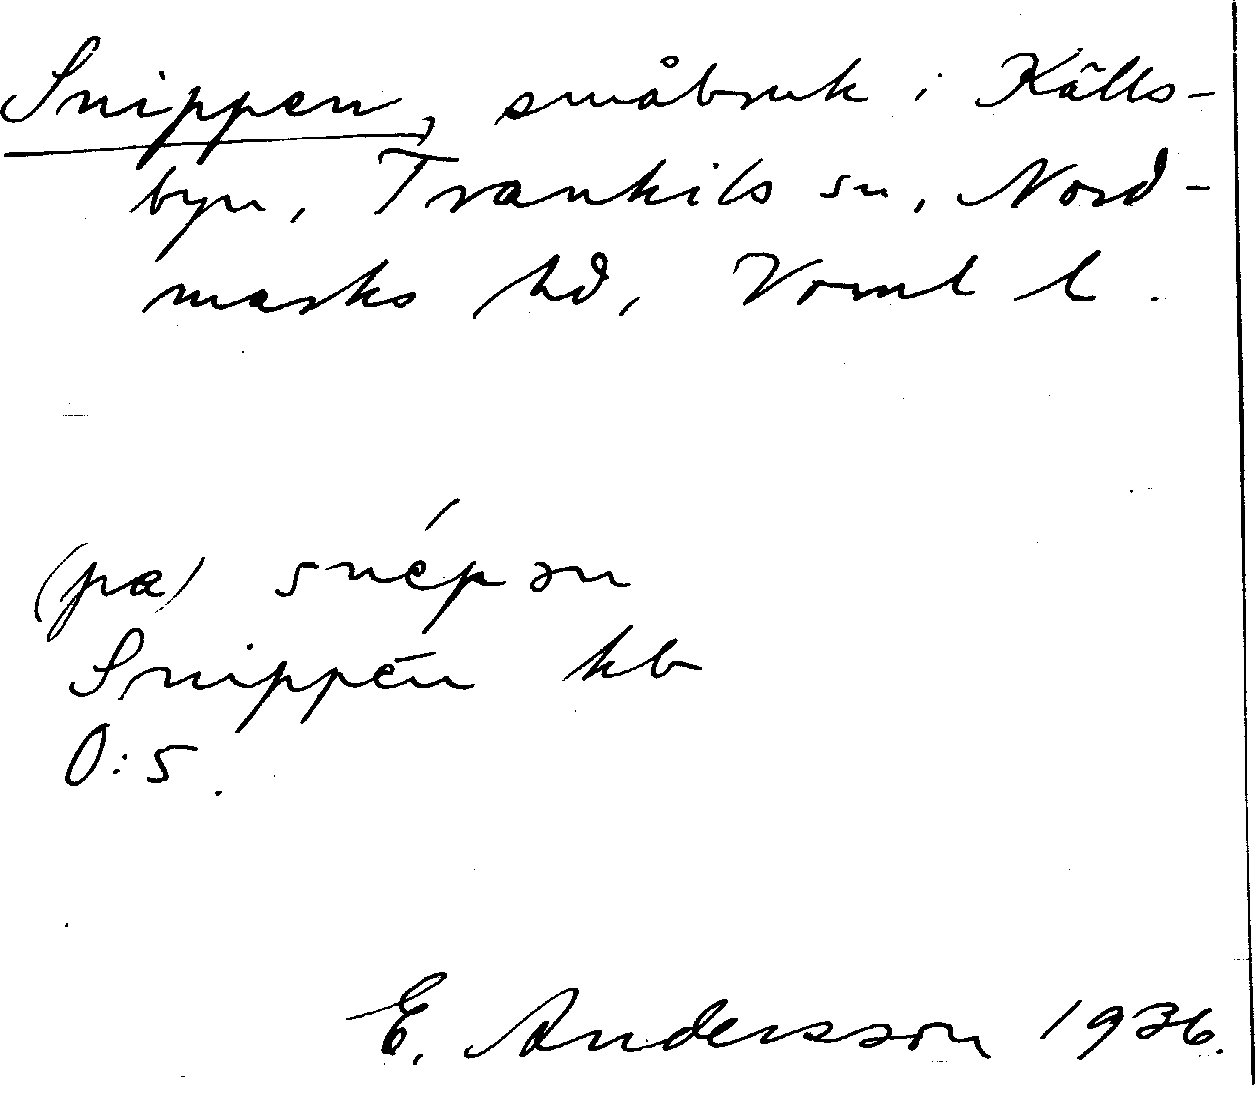 Snippen, småbruk i Källs-
byn, Trankils sn, Nord-
marks hd, Vrml l.
(pa) snépən
Snippen kb
O:5.
E. Andersson 1936.